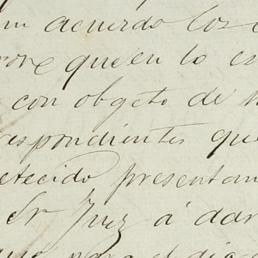 acuerdo los
que en lo es
con obgeto de
espondientes que
etecido presentan
Sr Juez á dar